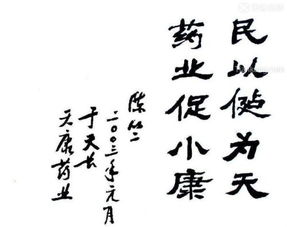 民以健为天
药业促小康
陈
二〇〇三年元月
于天长
天康药业